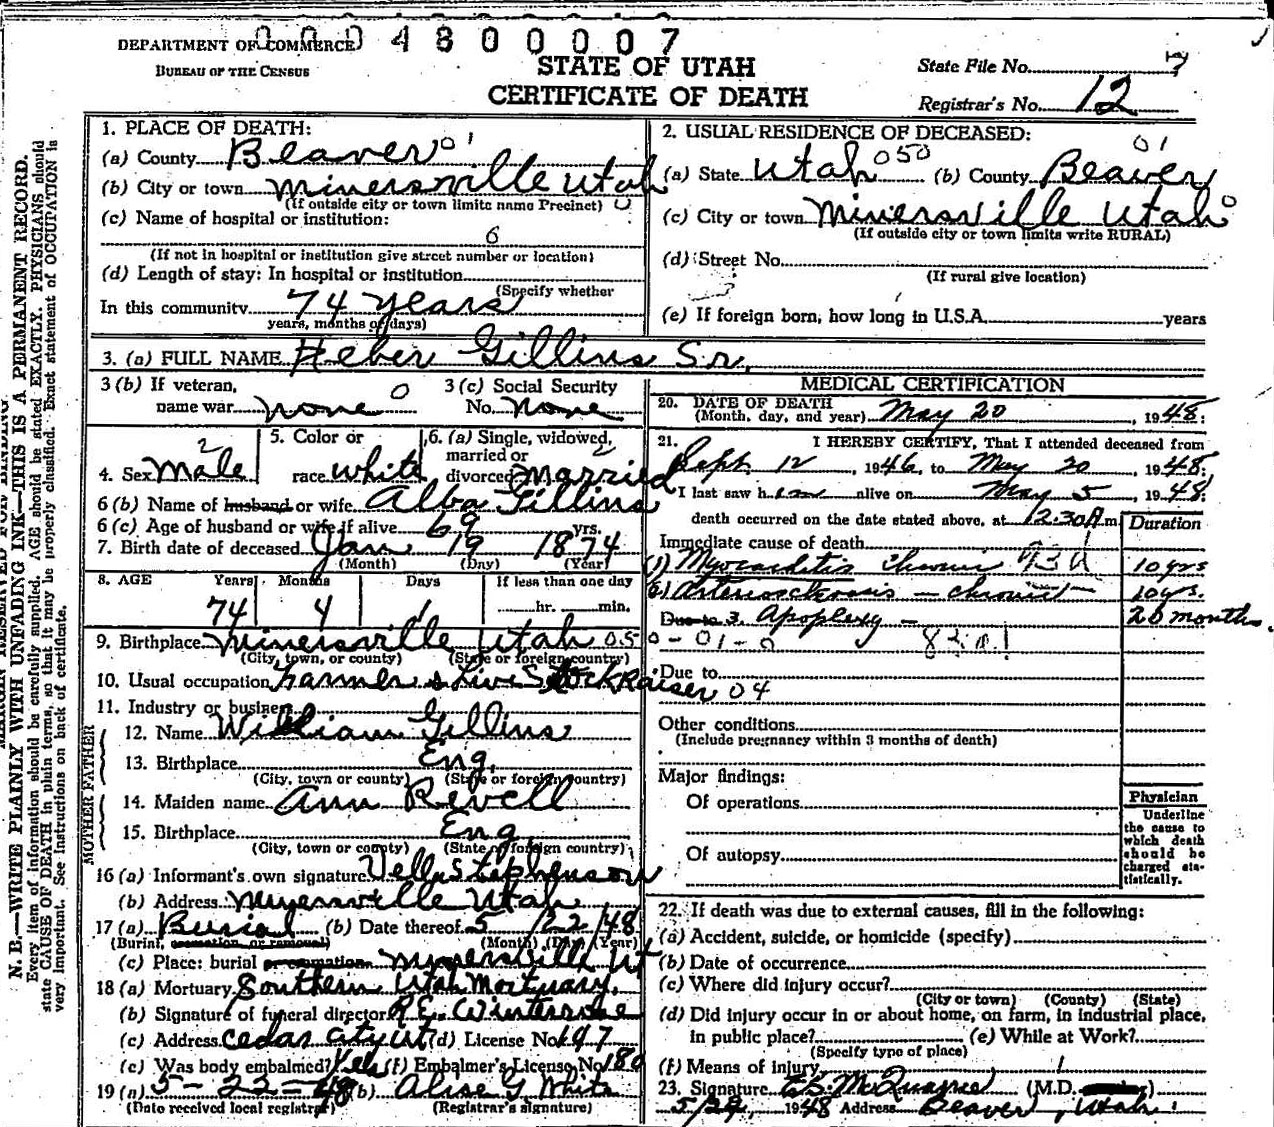 0004800007
DEPARTMENT OF COMMERCE
BUREAU OF THE CENSUS
STATE OF UTAH
CERTIFICATE OF DEATH
State File No. 7
Registrar's No. 12
1. PLACE OF DEATH:
(a) County Beaver 01
(b) City or town Minersville Utah
(If outside city or town limits name Precinct) 0
(c) Name of hospital or institution:
6
(If not in hospital or institution give street number or location)
(d) Length of stay: In hospital or institution
(Specify whether
In this community 74 years
years, months or days)
2. USUAL RESIDENCE OF DECEASED:
01
(a) State Utah 050 (b) County Beaver
(c) City or town Minersville Utah 0
(If outside city or town limits write RURAL)
(d) Street No.
(If rural give location)
(e) If foreign born, how long in U.S.A. years
3. (a) FULL NAME Heber Gillins Sr.
3 (b) If veteran, 0
name war none
3 (c) Social Security
No. none
4. Sex Male 2
5. Color or
race White
6. (a) Single, widowed, 2
married or
divorced Married
6 (b) Name of husband or wife Alba Gillins
6 (c) Age of husband or wife if alive 69 yrs.
7. Birth date of deceased Jan 19 1874
(Month) (Day) (Year)
8. AGE Years Months Days If less than one day
74 4 1 hr. min.
9. Birthplace Minersville Utah 050-01-0
(City, town, or county) (State or foreign country)
10. Usual occupation Farmer & Live Stock Raiser 04
11. Industry or business
FATHER
12. Name William Gillins
13. Birthplace Eng.
(City, town or county) (State or foreign country)
MOTHER
14. Maiden name Ann Revell
15. Birthplace Eng
(City, town or county) (State or foreign country)
16 (a) Informant's own signature Vella Stephenson
(b) Address Minersville Utah
17 (a) Burial (b) Date thereof 5/22/48
(Burial, cremation, or removal) (Month) (Day) (Year)
(c) Place: burial or cremation Minersville Ut
18 (a) Mortuary Southern Utah Mortuary.
(b) Signature of funeral director
(c) Address Cedar City Ut (d) License No. 197
(e) Was body embalmed? Yes (f) Embalmer's License No. 180
19 (a) 5-22-48 (b) Alise G. White
(Date received local registrar) (Registrar's signature)
MEDICAL CERTIFICATION
20. DATE OF DEATH
(Month, day, and year) May 20, 1948.
21. I HEREBY CERTIFY, That I attended deceased from
Sept. 12, 1946, to May 20, 1948.
I last saw him alive on May 5, 1948.
death occurred on the date stated above, at 12:30 A m.
Duration
Immediate cause of death
(1) Myocarditis chronic 10 yrs
(2) Arteriosclerosis - chronic 10 yrs.
Due to 3. Apoplexy - 20 months.
Due to
Other conditions
(Include pregnancy within 3 months of death)
Major findings:
Of operations
Of autopsy
Physician
Underline
the cause to
which death
should be
charged sta-
tistically.
22. If death was due to external causes, fill in the following:
(a) Accident, suicide, or homicide (specify)
(b) Date of occurrence
(c) Where did injury occur?
(City or town) (County) (State)
(d) Did injury occur in or about home, on farm, in industrial place,
in public place? (e) While at Work?
(Specify type of place)
(f) Means of injury
23. Signature (M.D.
5/29, 1948 Address Beaver, Utah
MARGIN RESERVED FOR BINDING
N. B.—WRITE PLAINLY WITH UNFADING INK—THIS IS A PERMANENT RECORD.
Every item of information should be carefully supplied. AGE should be stated EXACTLY. PHYSICIANS should
state CAUSE OF DEATH in plain terms, so that it may be properly classified. Exact statement of OCCUPATION is
very important. See instructions on back of certificate.